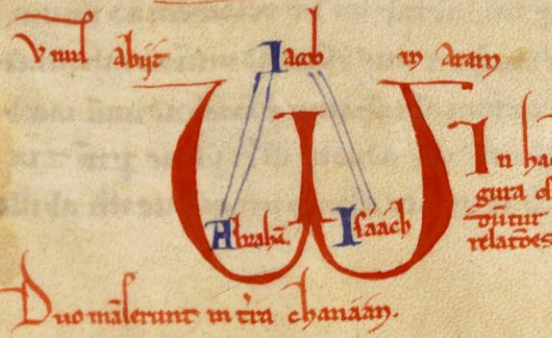 Vnus abijt Iacob in Aram
Abrahā. Isaach
In hac
gura
relatōes
Duo māserunt in t̄ra chanáán.